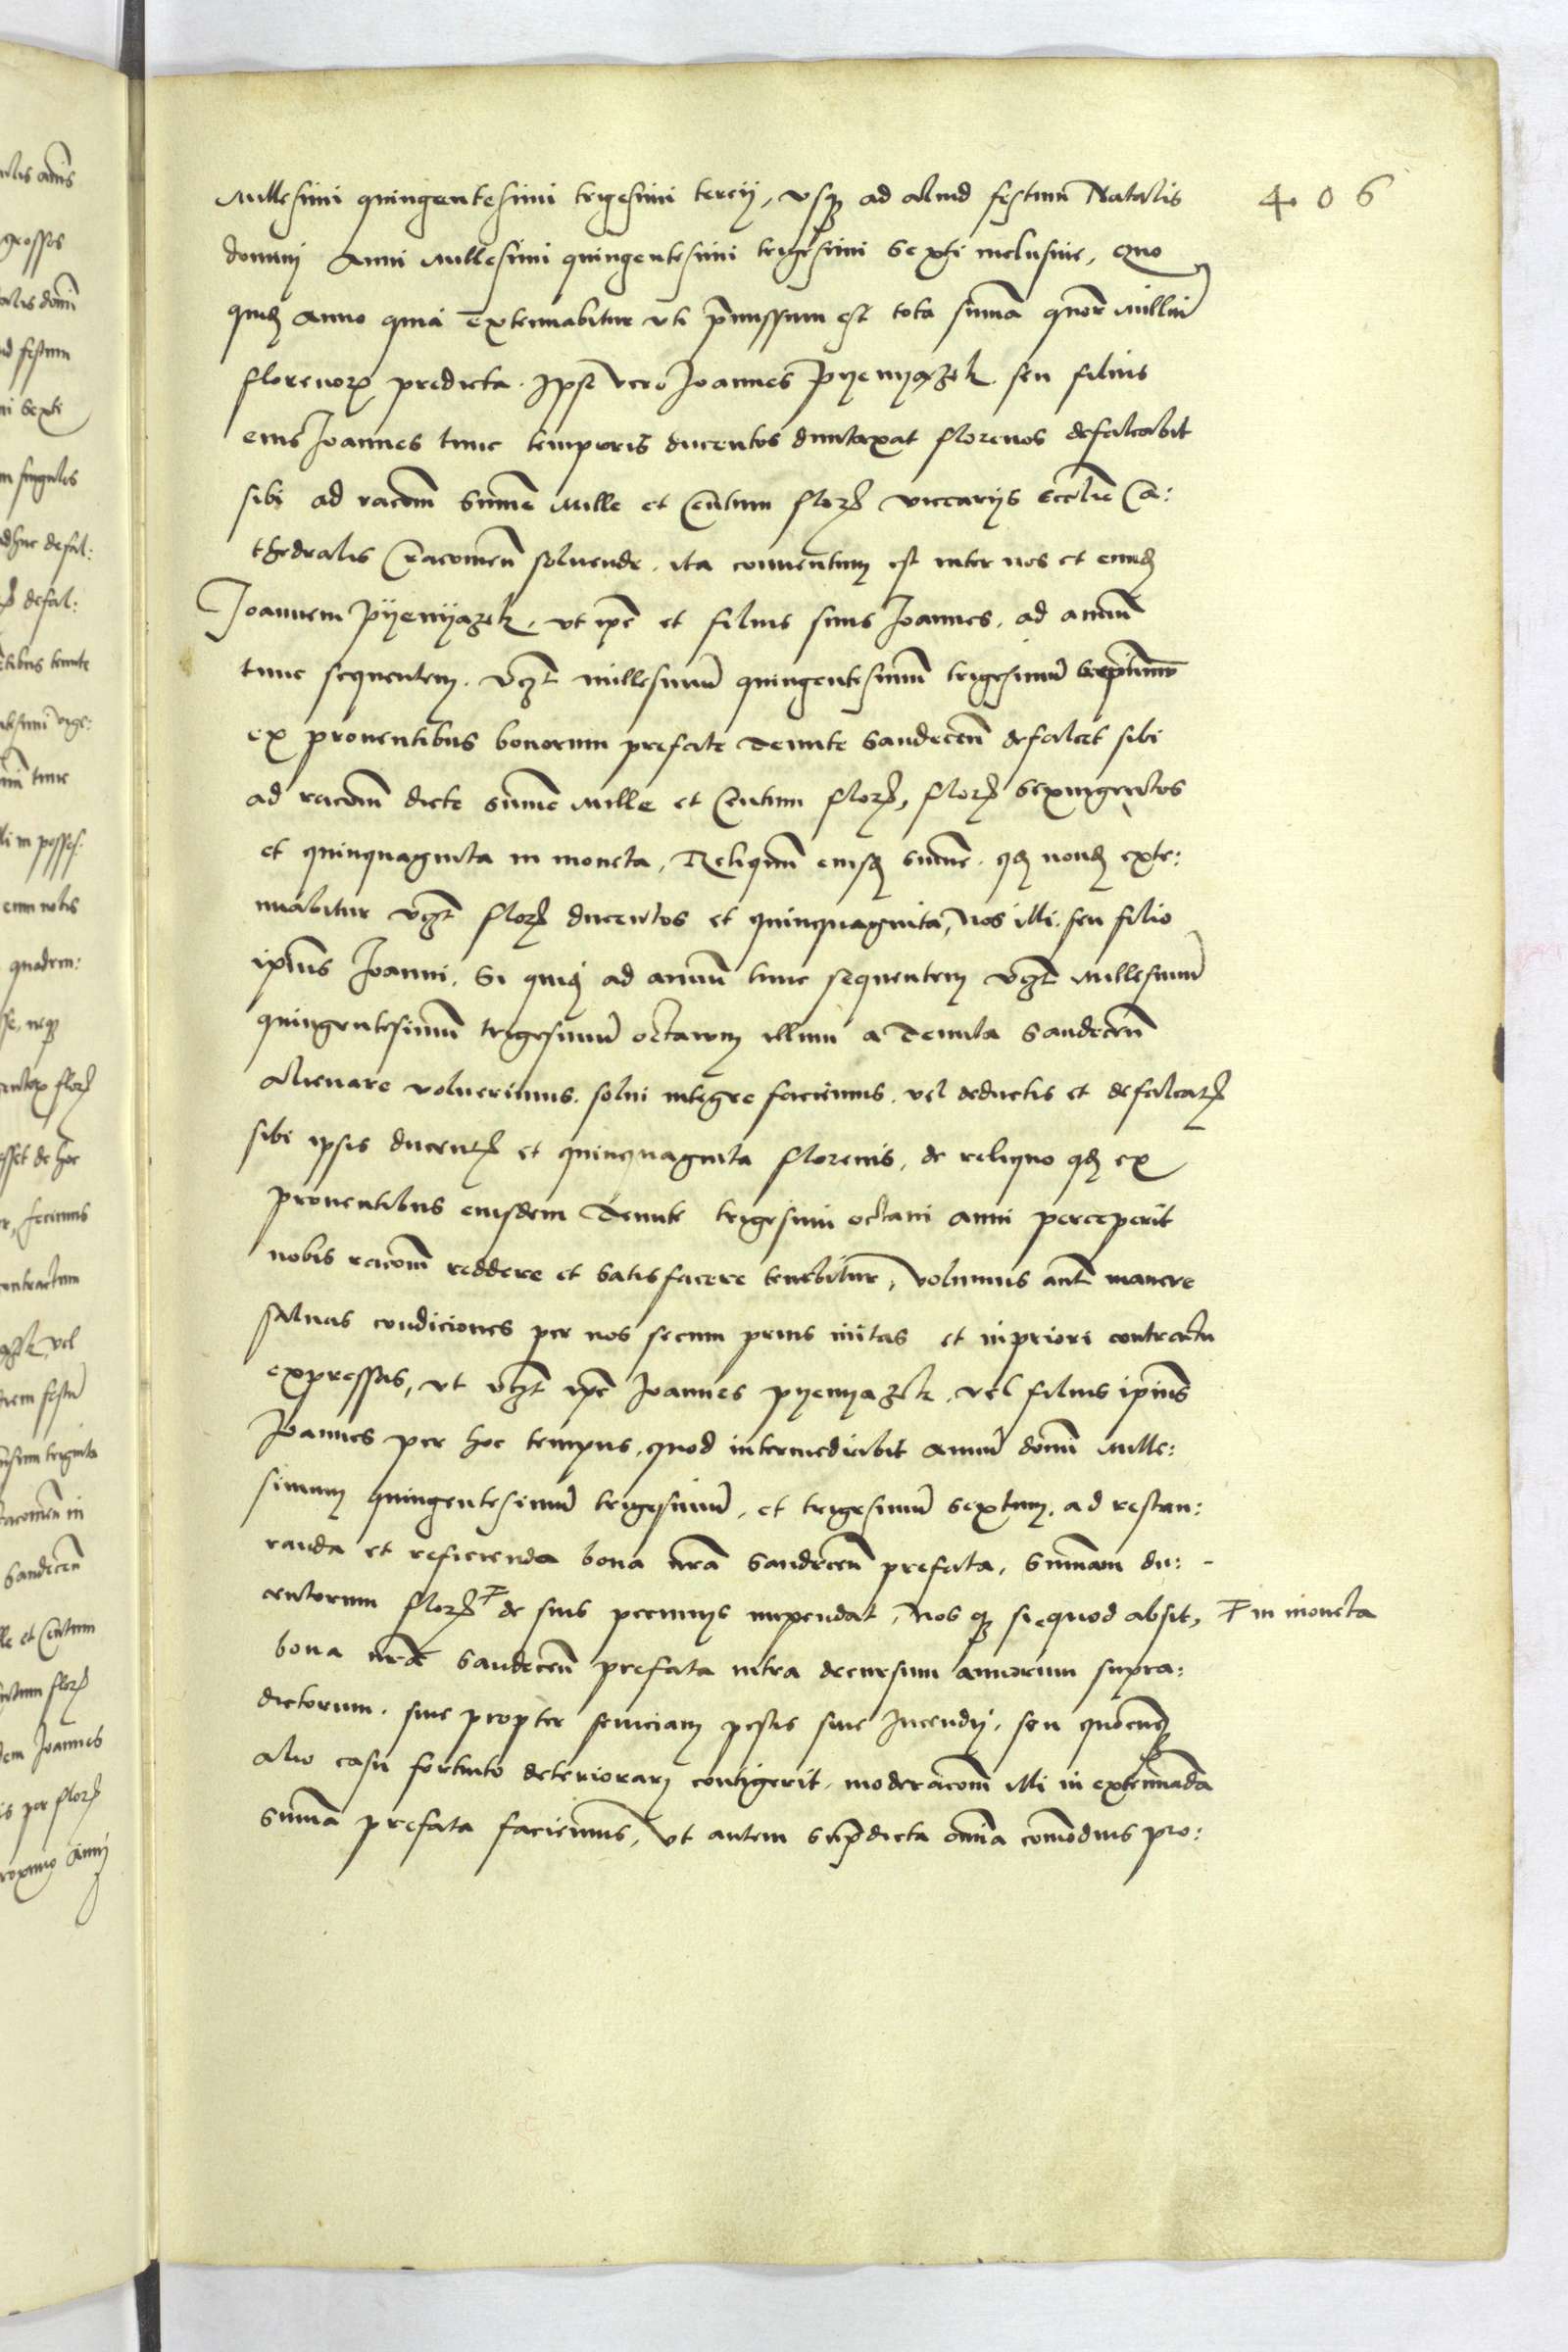 406
Millesimi quingentesimi trigesimi tercij, vsq3 ad aliud festum Natalis
domini Anni Millesimi quingentesimi trigesimi Sexti inclusiue, Quo
quid(em) Anno quia extenuabitur vti p̄missum est tota sum̄a quor̄ milliū
florenor(um) predicta. Ipse vero Joannes Pyenyazek seu filius
eius Joannes tunc temporis ducentos duntaxat florenos defalcabit
sibi ad rac̄om̄ sum̄e Mille et Centum flor(enorum) viccarijs eccl̄ie Ca:
thedralis Cracouien̄ soluende. ita conuentum est inter nos et eund(em)
Joannem Pÿenÿazek, vt ip̄e et filius suus Joannes, ad annū
tunc sequentem, vʒt millesimū quingentesimum trigesimū septimum
ex prouentibus bonorum prefate Tenute Sandecen̄ defalcet sibi
ad rac̄om̄ dicte sum̄e Mille et Centum flor(enorum), flor(enos) sexingentos
et quinquaginta in moneta, Reliquum eiusd(em) sum̄e, qd nond(um) exte:
nuabitur vʒt flor(enos) ducentos et quinquaginta, Nos illi seu filio
ip̄ius Joanni. Si quid(em) ad annū tunc sequentem vʒt Millesimū
quingentesimum trigesimū octauum illum a Tenuta Sandecen̄
alienare voluerimus, solui integre faciemus, vel deductis et defalcat(is)
sibi ipsis ducent(is) et quinquaginta florenis, de reliquo qd ex
prouentibus eiusdem Tenute trigesimi octaui anni perceperit
nobis rac̄om̄ reddere et satisfacere tenebitur, Volumus aut̄ manere
saluas condiciones per nos secum prius initas et in priori contractu
expressas, vt vʒt ip̄e Joannes Pyenyazek, vel filius ip̄ius
Joannes per hoc tempus, quod intermediabit annū domini Mille:
simum quingentesimū trigesimū, et trigesimū sextum, ad restau:
randa et reficienda bona nr̄a Sandecen̄ prefata, Summam du:
centorum flor(enorum) ₮ de suis pecunijs impendat, Nos q3 si, quod absit, ₮ in moneta
bona nr̄a Sandecen̄ prefata intra decursum annorum supra:
dictorum, siue propter seuiciam pestis siue Incendij, seu quocunq3
alio casu fortuito deteriorari contigerit, moderac̄om̄ illi in extenuāda
Sum̄a prefata faciemus, Vt autem sup̄dicta om̄ia com̄odius pro: